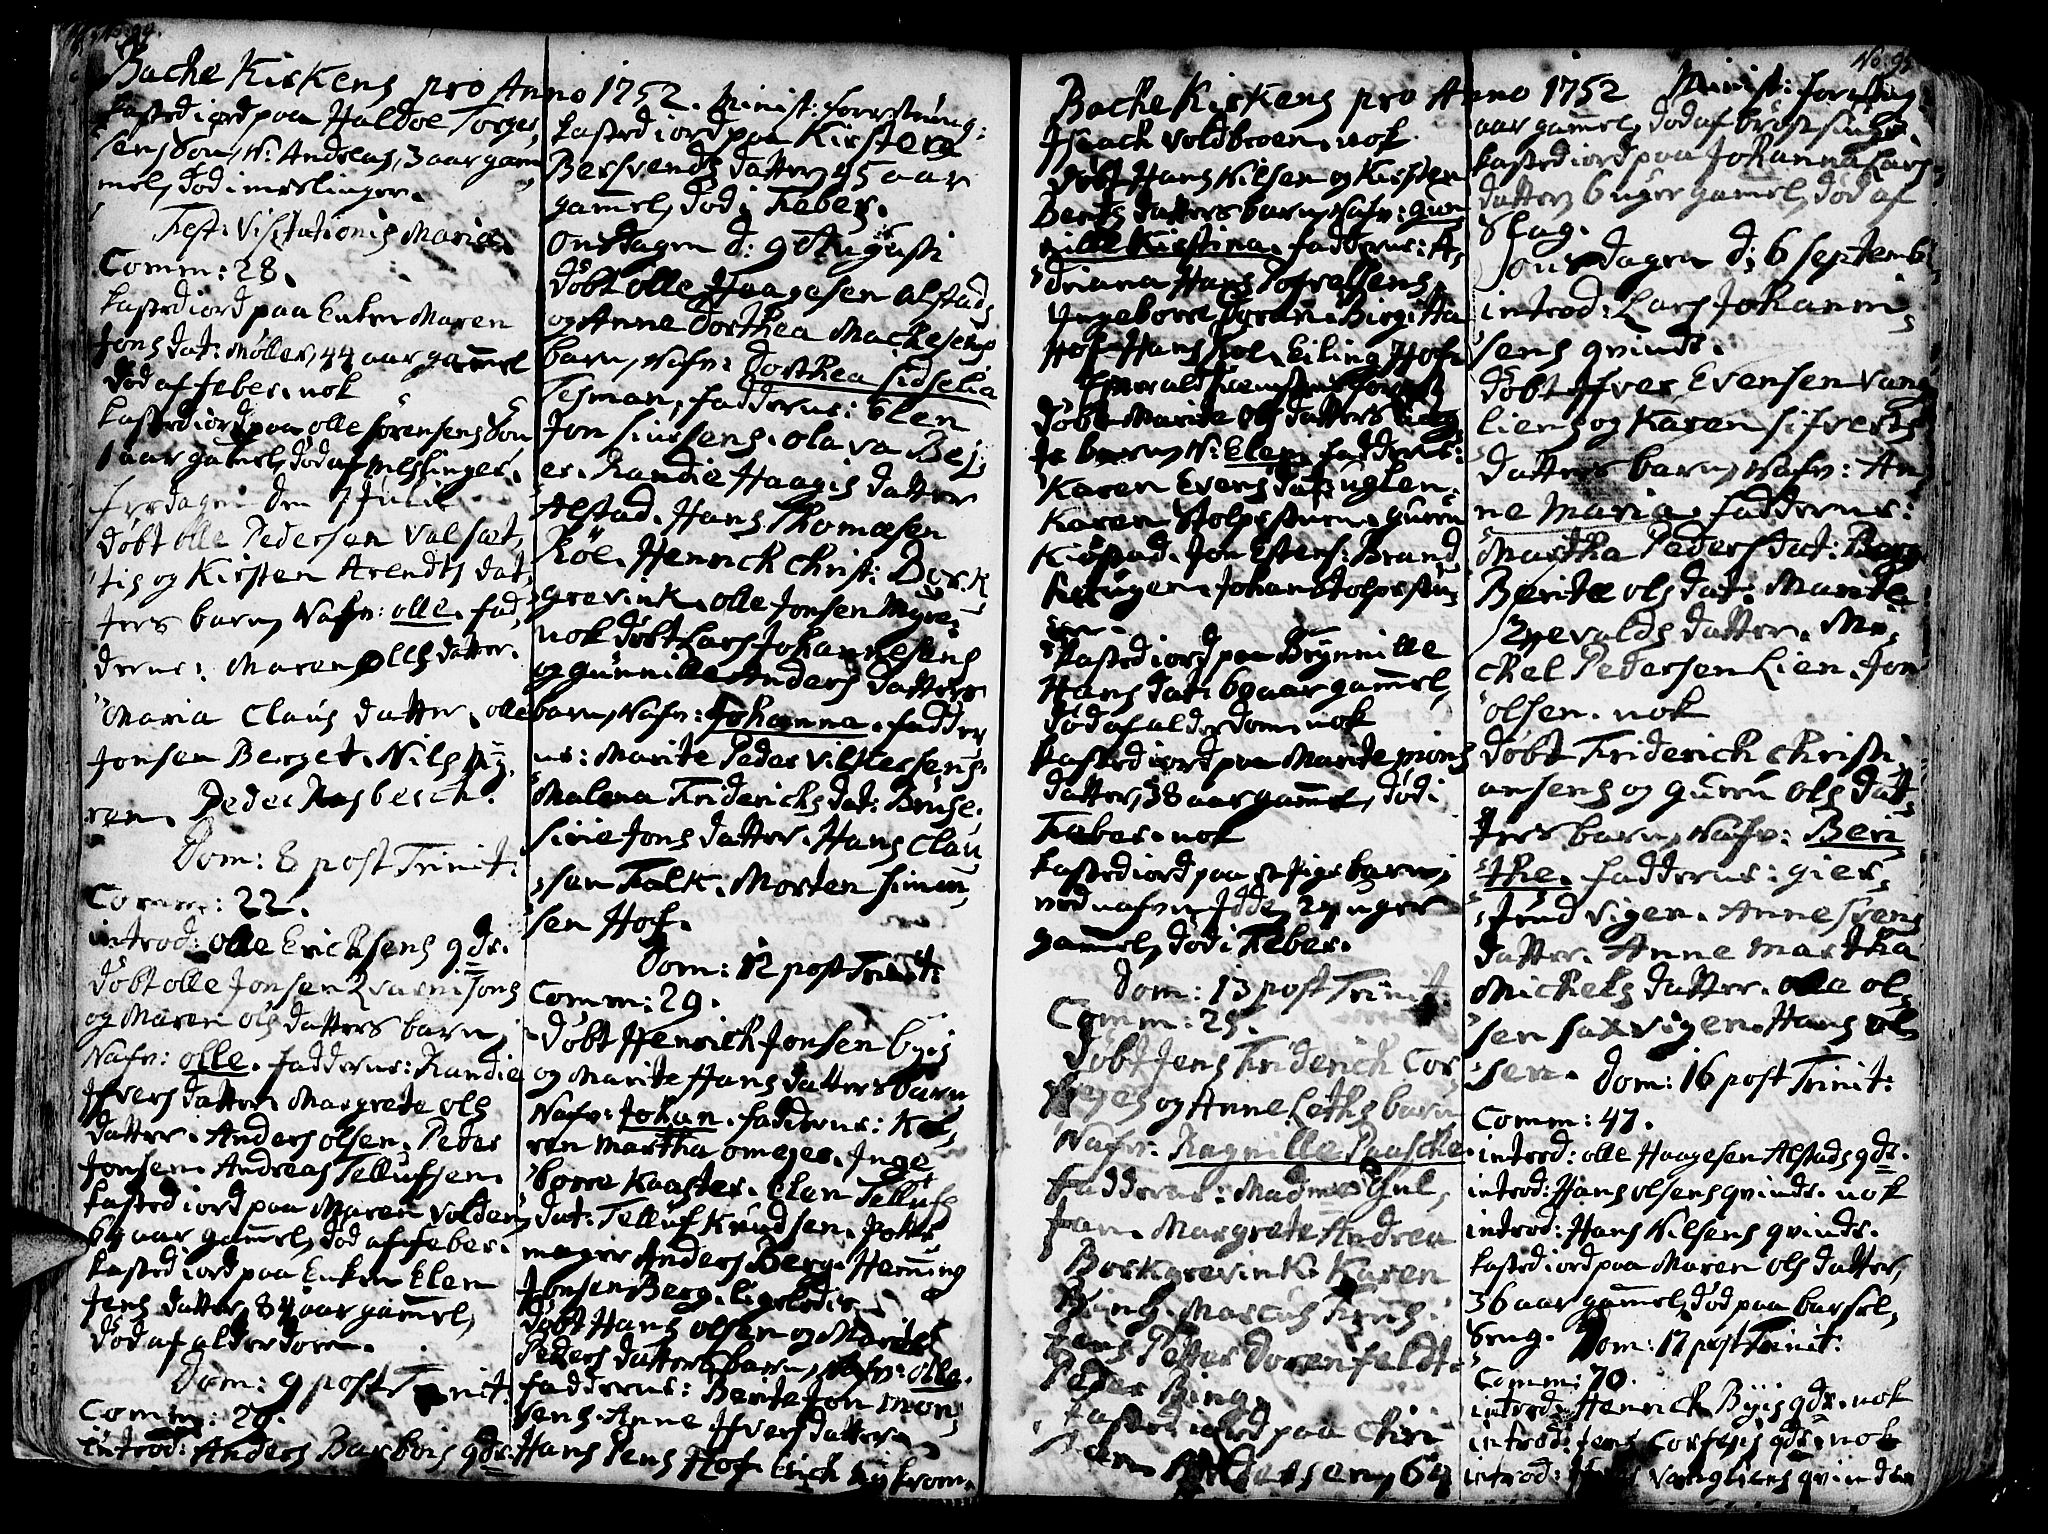 No: 94.
Bache Kirkens pro Anno 1752. Minist: forretning:
kasted jord paa Haldoe Torges,
sens Søn, N: Andreas, 3 aar gam
mel, død i meslinger.
Fest: Visitationis Mariæ.
Comm: 28.
kasted jord paa Enken Maren
Jons dat: Møller, 44 aar gam̅el
død af feber. nok
kasted jord paa olle Sørensens Søn
1 aar gam̅el, død af Meslinger.
fredagen den 7 Julii
døbt olle Pedersen Valsæt,
tis og Kirsten Arendts dat,
ters barn, Nafn: olle. fad,
derne: Maren olls datter.
Maria Claus datter. olle
Jonsen Berget. Nils
ren. Peder Rasbesch.
Dom: 8 post Trinit:
Comm: 22.
introd: olle Ericksens qdr.
døbt olle Jonsen Qvarni Jons
og Maren ols datters barn,
Nafn: olle. fadderne: Randie
Ifvers datter. Margrete ols
datter. Anders olsen. Peder
Jonsen. Andreas Tellufsen.
kasted jord paa Maren volden
69 aar gam̅el, død af feber.
kasted jord paa Enken Elen
Jens datter, 84 aar gam̅el,
død af alderdom.
Dom: 9 post Trinit:
Comm: 29.
introd: Anders Barbois qdr.
kasted jord paa Kirsten
Bersvends datter, 95 aar
gam̅el, død i Feber.
onsdagen d: 9 Augusti
døbt olle Haagesen Alstads
og Anne Dorthea Mackesens
barn, Nafn: Dorthea Sidselia
Tesman, fadderne: Elen
Jon Siursens. olava Bej,
er. Randie Haagis datter
Alstad. Hans Thomæsen
Køl. Henrick Christ: Bork
grevink. olle Jonsen Myre.
nok døbt Lars Johannesens
og Gunnille Anders datters
barn, Nafn: Johanna. fadder
ne: Marite Peder Vilkersens.
Malena Friderichs dat: Bruse.
Sirie Jons datter. Hans Clau
sen Falk. Morten Simon,
sen Hof.
Dom: 12 post Trinit:
Comm: 29.
døbt Henrick Jonsen Byis
og Marite Hans datters barn
Nafn: Johan. fadderne: Ka,
ren Martha omejer. Inge
borre Kaaster. Elen Tellufs
dat: Telluf Knudsen. Potte
mager Anders Berg. Hem̅ing
Jonsen Berg. ligeledis
døbt Hans olsen og Marite
Peders datters barn, Nafn: olle.
fadderne: Berite Jon Mon,
sens. Anne Ifvers datter
Hans Jens Hof. Erich Nykrom.
No: 95
Bache Kirkens pro Anno 1752 Minist: forretning
Isaach voldbroen. nok
døbt Hans Nilsen og Kirsten
Bents datters barn, Nafn: Gun
nille Kirstina. fadderne: A,
driana Hans
Ingeborre Birgitta
Hof. Hans Køl. Eiling Hof.
døbt Marite ols datters
barn, N: Elen. fadderne:
Karen Evens dat: uglen.
Karen Stolpestuen. Guren
Kiøstad. Jon Estens: Brand
Krugen. Johan Stolpestu,
en.
kasted jord paa Brynnille
Hans dat: 69 aar gam̅el,
død af alderdom. nok
kasted jord paa Marite Mons
datter, 38 aar gam̅el, død i
Feber. nok
kasted jord paa et Pige barn,
ved nafn Idde, 29 uger
gam̅el, død i Feber.
Dom: 13 post Trinit.
Comm: 25.
Døbt Jens Friderich Cor
fejes og Anne Leths barn
Nafn: Ragnille Paaske
fadderne: Madme Gul,
fan. Margrete Andrea
Borkgrevink. Karen
Bing. Marcus
Jens Petter Dorenfeldt.
Peder Bing.
kasted jord paa Chri
sten Andersen, 64
aar gam̅el, død af brøstsuge.
kasted jord paa Johanna Lars
datter, 6 uger gam̅el, død af
Slag.
onsdagen d: 6 Septemb:
introd: Lars Johanni,
sens qvinde.
døbt Ifver Evensen Vang
liens og Karen Sifverts
datters barn, Nafn: An
ne Maria. fadderne:
Martha Peders dat: Berg
Berite ols dat: Marite
Zyevalds datter. Mi,
chel Pedersen Lien. Jon
olsen. nok
døbt Friderich Christi,
ansens og Guru ols dat,
ters barn, Nafn: Beri
the. fadderne: Gier,
trud vigen. Anne Svens
datter. Anne Martha
Michels datter. olle ol,
sen Saxvigen. Hans ol
sen. Dom: 16 post Trinit:
Comm: 47.
introd: olle Haagesen Alstads qdr.
introd: Hans olsens qvinde. nok
introd: Hans Nilsens qvinde.
kasted jord paa Maren ols datter,
36 aar gam̅el, død paa barsel,
seng. Dom: 17 post Trinit:
Comm: 70.
introd: Henrick Byis qdr. nok
introd: Jens Corfejis qdr. nok
introd: Vangliens qvinde